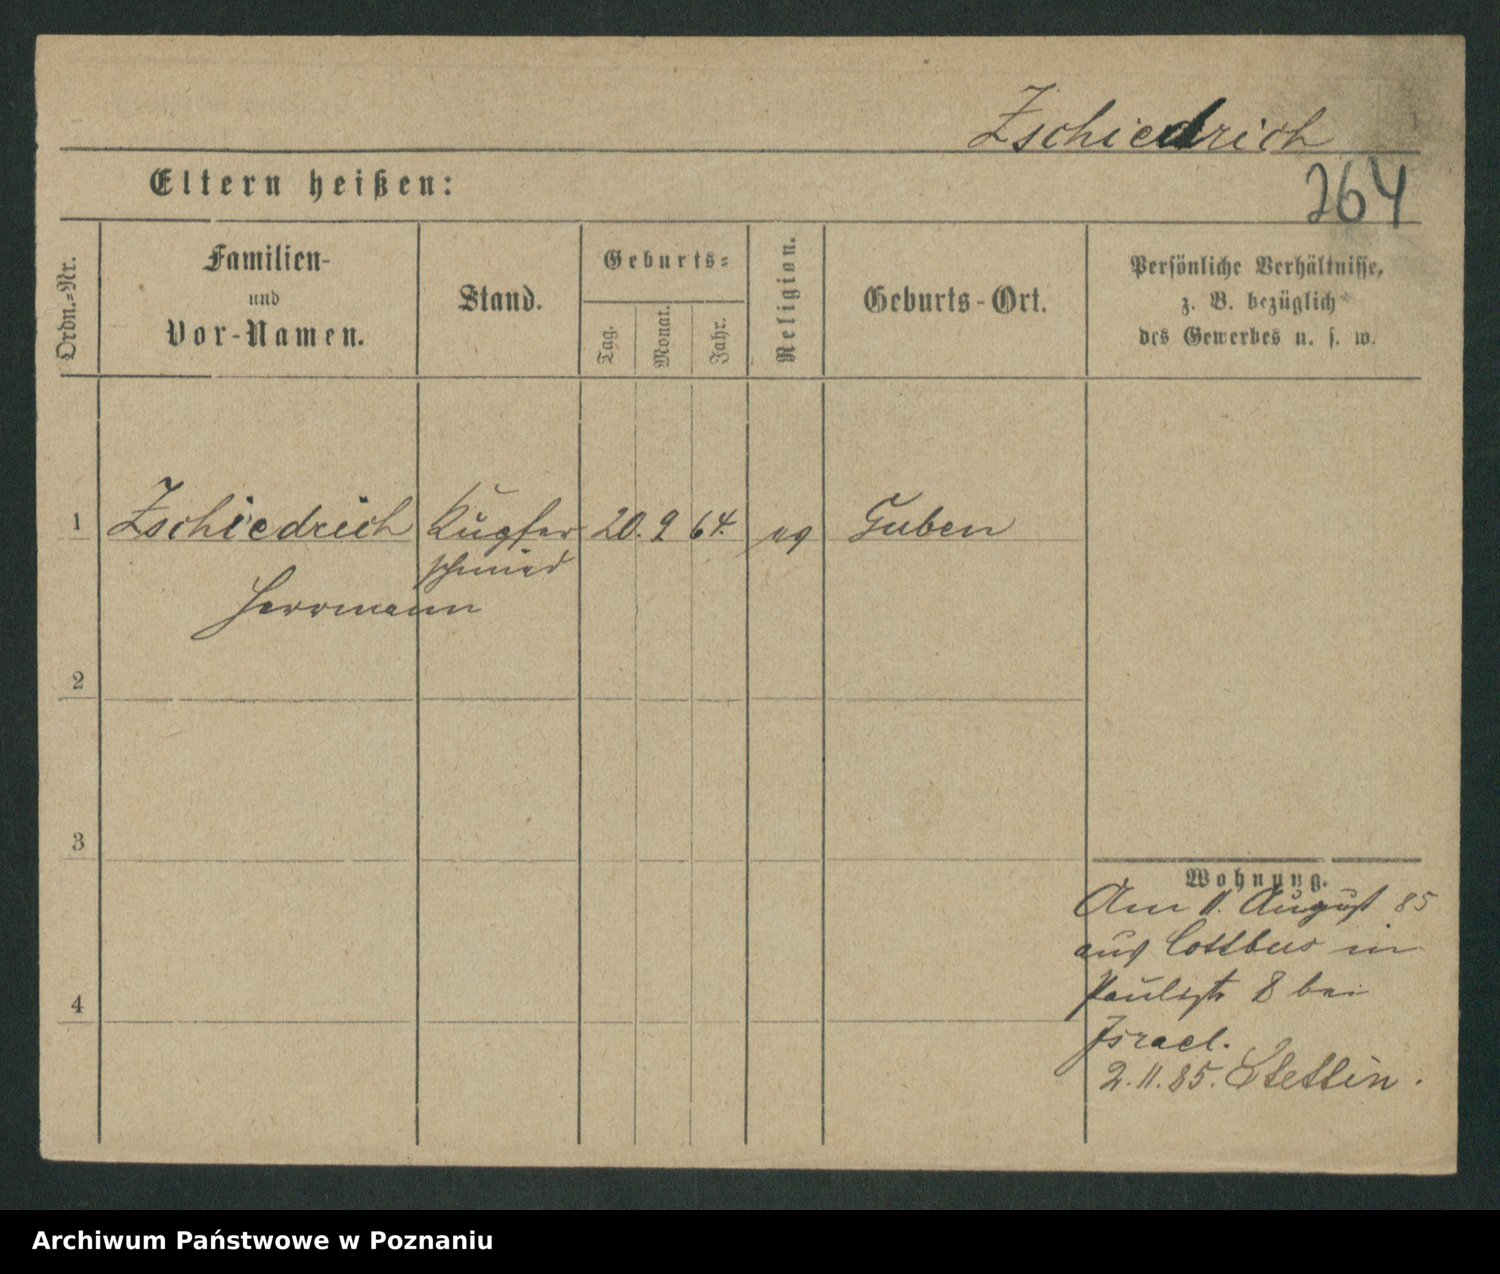 Zschiedrich
264
Eltern heißen:
Ordn.=Nr.
Familien-
und
Vor-Namen.
Stand.
Geburts=
Tag.
Monat.
Jahr.
Religion.
Geburts-Ort.
Persönliche Verhältnisse,
z. B. bezüglich
des Gewerbes u. s. w.
1 Zschiedrich Kupfer 20. 9 64. ev Guben
schmied
Herrmann
2
3
4
Wohnung.
Am 11. August 85
aus Cottbus in
Paulistr 8 bei
Israel.
2. 11. 85. Stettin.
Archiwum Państwowe w Poznaniu